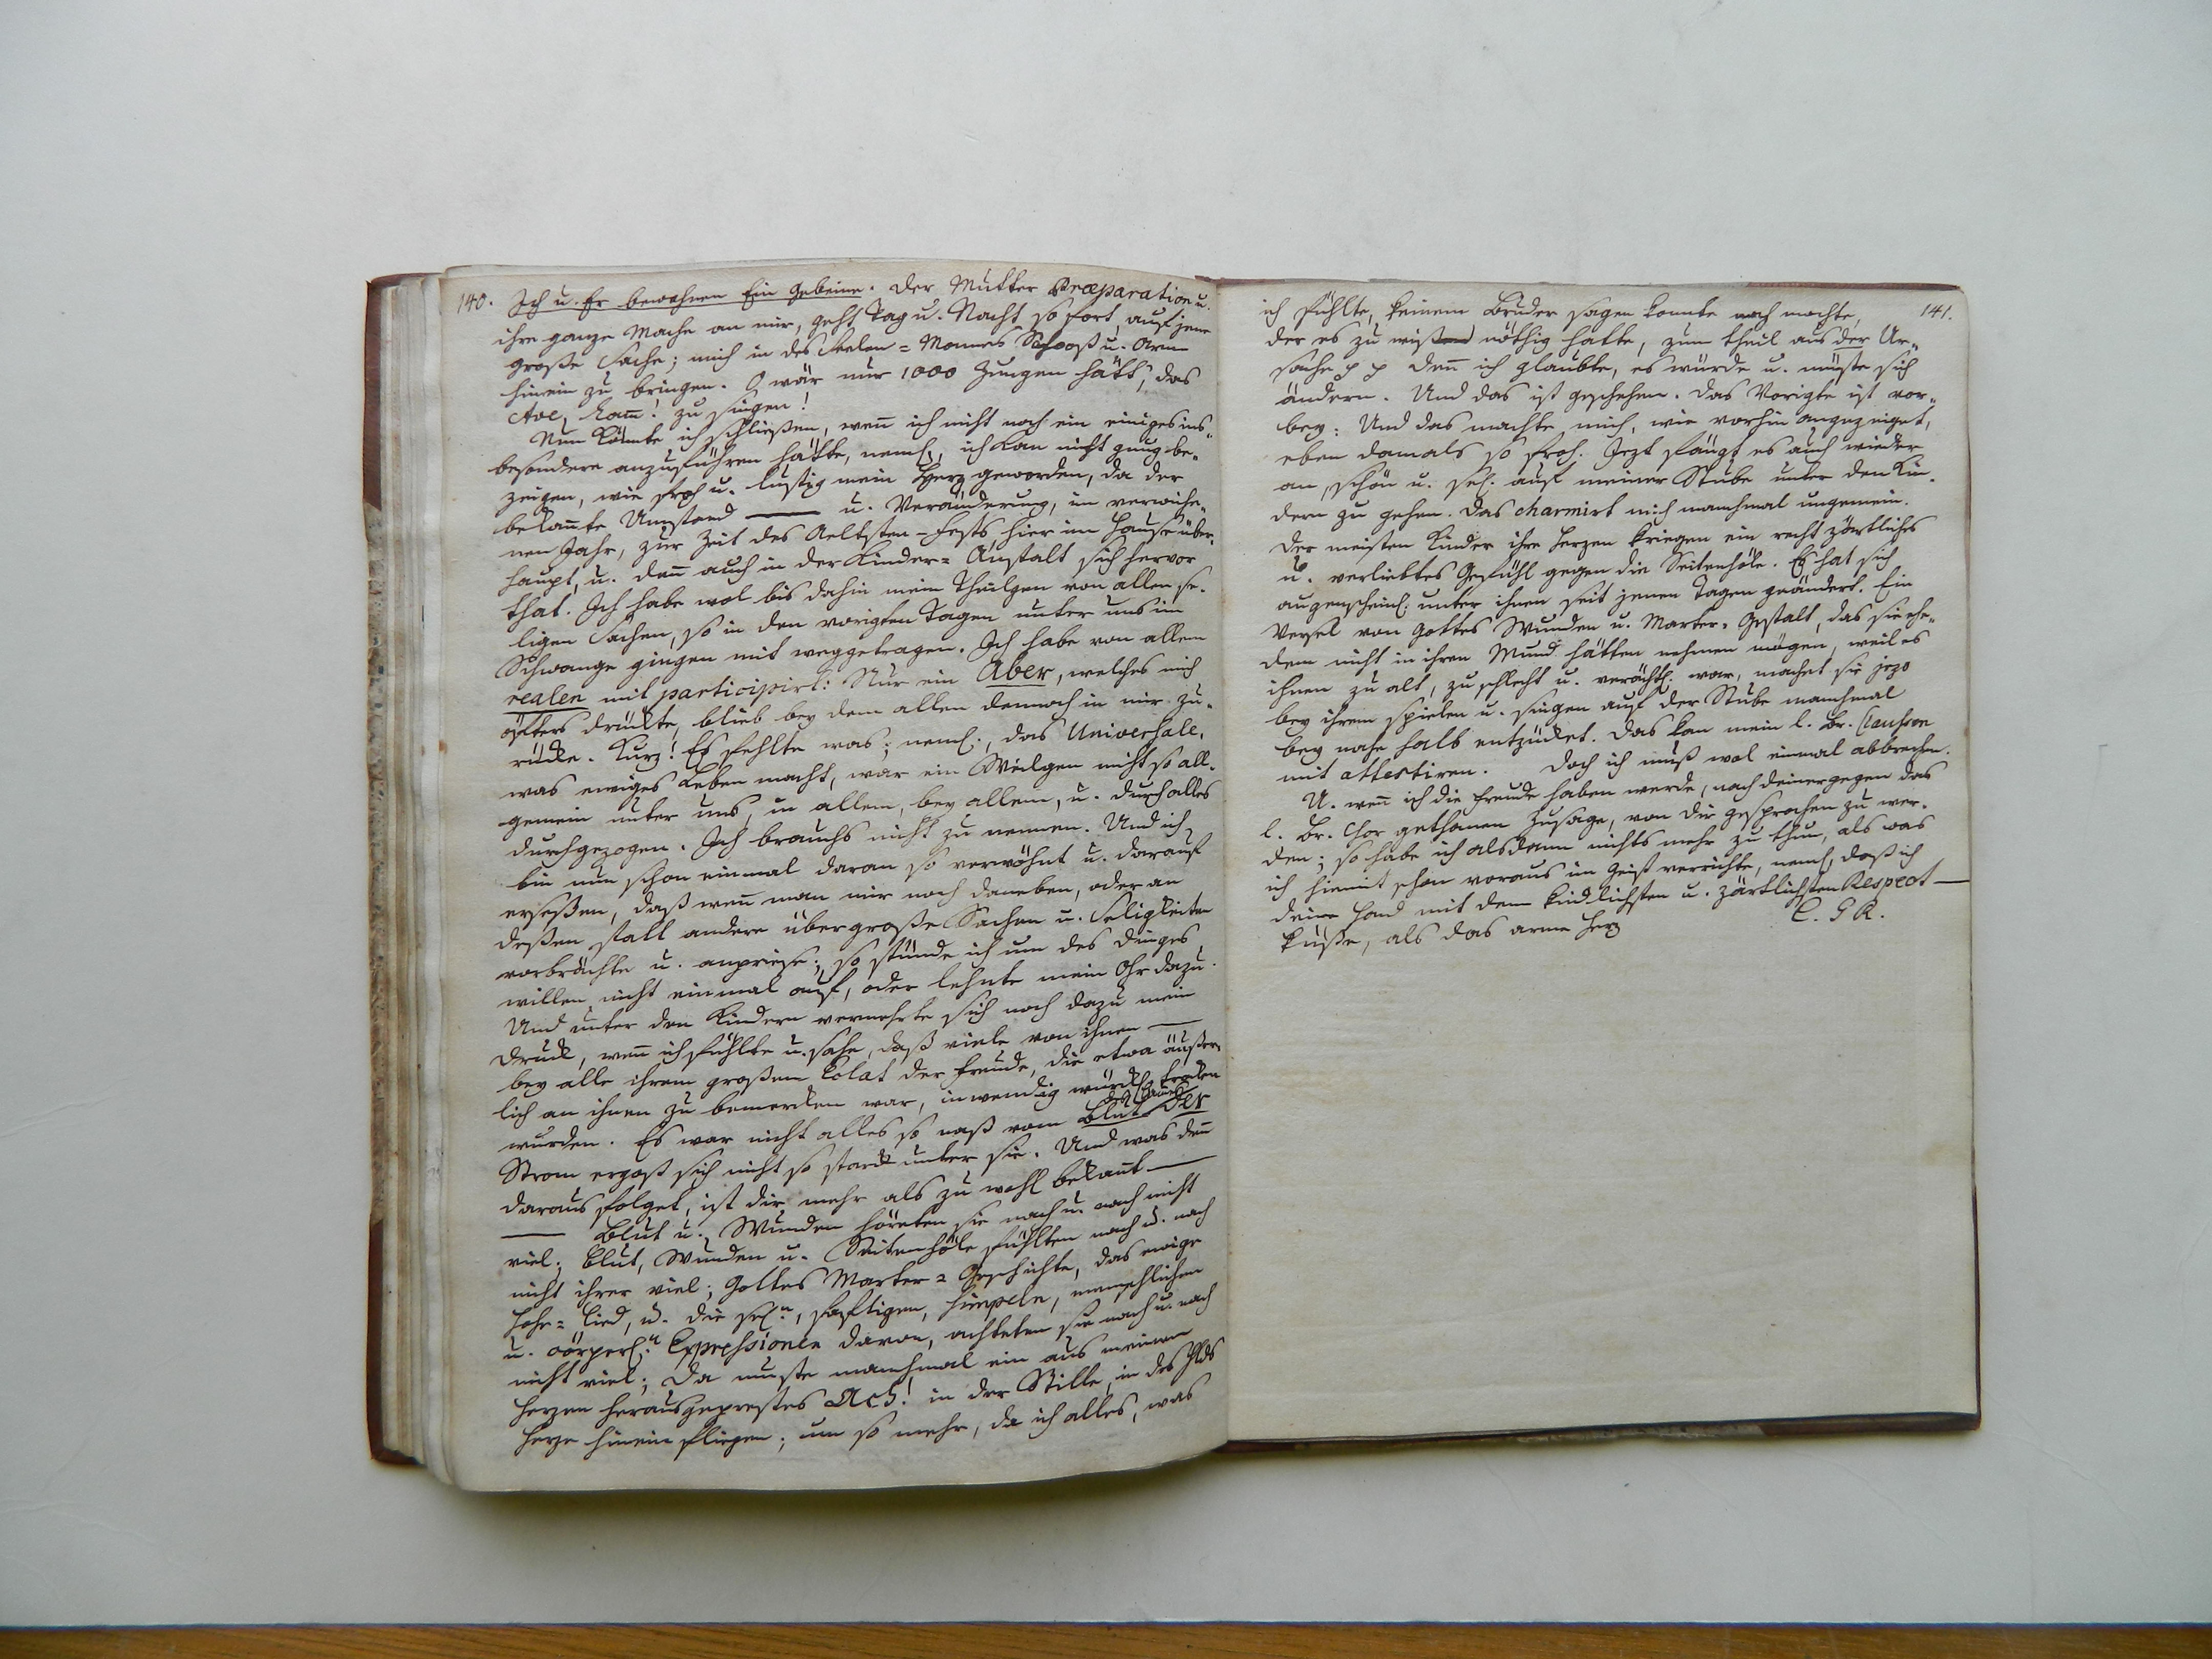 140. Ich u. Er bewohnen Ein Gebeine. Der Mutter Præparation u.
ihre ganze Mache an mir, geht Tag u. Nacht so fort, auf jene
große Sache; mich in des Seelen=Mannes Schooß u. Arm
hinein zu bringen. O wär nur 1000 Zungen hätt, das
Ave, Lam̄! zu singen!
Nun könnte ich schließen, wen̄ ich nicht noch ein einiges ins„
besondere anzuführen hätte, neml., ich kan nicht gnug be„
zeugen, wie froh u. lustig mein Herz geworden, da der
bekan̄te Umstand —— u. Veränderung, im verwiche„
nen Jahr, zur Zeit des Aeltsten-Fests hier im Hause über„
haupt, u. den̄ auch in der Kinder=Anstalt sich hervor
that. Ich habe wol bis dahin mein Theilgen von allen se„
ligen Sachen, so in den vorigten Tagen unter uns im
Schwange gingen mit weggetragen. Ich habe von allem
realen mit participirt: Nur ein Aber, welches mich
öfters drückte, blieb bey dem allen dennoch in mir zu„
rücke. Kurz! Es fehlte was; neml., das Universale,
was ewiges Leben macht, war ein Weilgen nicht so all„
gemein unter uns, in allem, bey allem, u. durch alles
durchgezogen. Ich brauchs nicht zu nennen. Und ich
bin nun schon einmal daran so verwöhnt u. darauf
erseßen, daß wen̄ man mir noch daneben, oder an
deßen statt andere übergroße Sachen u. Seligkeiten
vorbrächte u. anpriese; so stünde ich um des Dinges
willen nicht einmal auf, oder lehnte mein Ohr dazu.
Und unter den Kindern vermehrte sich noch dazu mein
Druck, wen̄ ich fühlte u. sahe, daß viele von ihnen ——
bey alle ihrem großem Eclat der Freude, die etwa äußer„
lich an ihnen zu bemercken war, inwendig würckl. trocken
wurden. Es war nicht alles so naß vom Blut. Der
Strom ergoß sich nicht so starck unter sie. Und was den̄
daraus folget, ist dir mehr als zu wohl bekan̄t ——
—— Blut u. Wunden höreten sie nach u. nach nicht
viel; Blut, Wunden u. Seitenhöle fühlten nach u. nach
nicht ihrer viel; Gottes Marter=Geschichte, das ewige
Hohe=Lied, u. die sel.n, saftigen, simpeln, menschlichen
u. cörperl.n Expressionen davon, achteten sie nach u. nach
nicht viel; Da muste manchmal ein aus meinem
Herzen herausgeprestes Ach! in der Stille, in des Hlds
Herze hinein fliegen; um so mehr, da ich alles, was
141.
ich fühlte, keinem Bruder sagen konte noch mochte,
der es zu wißen nöthig hatte, zum theil aus der Ur„
sache p p den̄ ich glaubte, es würde u. müste sich
ändern. Und das ist geschehen. Das Vorigte ist vor„
bey: Und das machte mich, wie vorhin angezeiget,
eben damals so froh. Jezt fängt es auch wieder
an, schön u. sel. auf meiner Stube unter den Kin„
dern zu gehen. Das charmirt mich manchmal ungemein.
Der meisten Kinder ihre Herzen kriegen ein recht zärtliches
u. verliebtes Gefühl gegen die Seitenhöle. Es hat sich
augenscheinl. unter ihnen seit jenen Tagen geändert. Ein
Versel von Gottes Wunden u. Marter=Gestalt, das sie ehe„
dem nicht in ihren Mund hätten nehmen mögen, weil es
ihnen zu alt, zu schlecht u. verächtl. war, machet sie jezo
bey ihrem spielen u. singen auf der Stube manchmal
bey nahe halb entzücket. Das kan mein l. Br.
mit attestiren. Doch ich muß wol einmal abbrechen.
U. wen̄ ich die Freude haben werde, nach deiner gegen das
l. Br. Chor gethanen Zusage, von dir gesprochen zu wer„
den; so habe ich alsdann nichts mehr zu thun, als was
ich hiemit schon voraus im Geist verrichte, neml. daß ich
deine Hand mit dem kindlichsten u. zärtlichsten Respect ——
küße, als das arme Herz
C. G R.